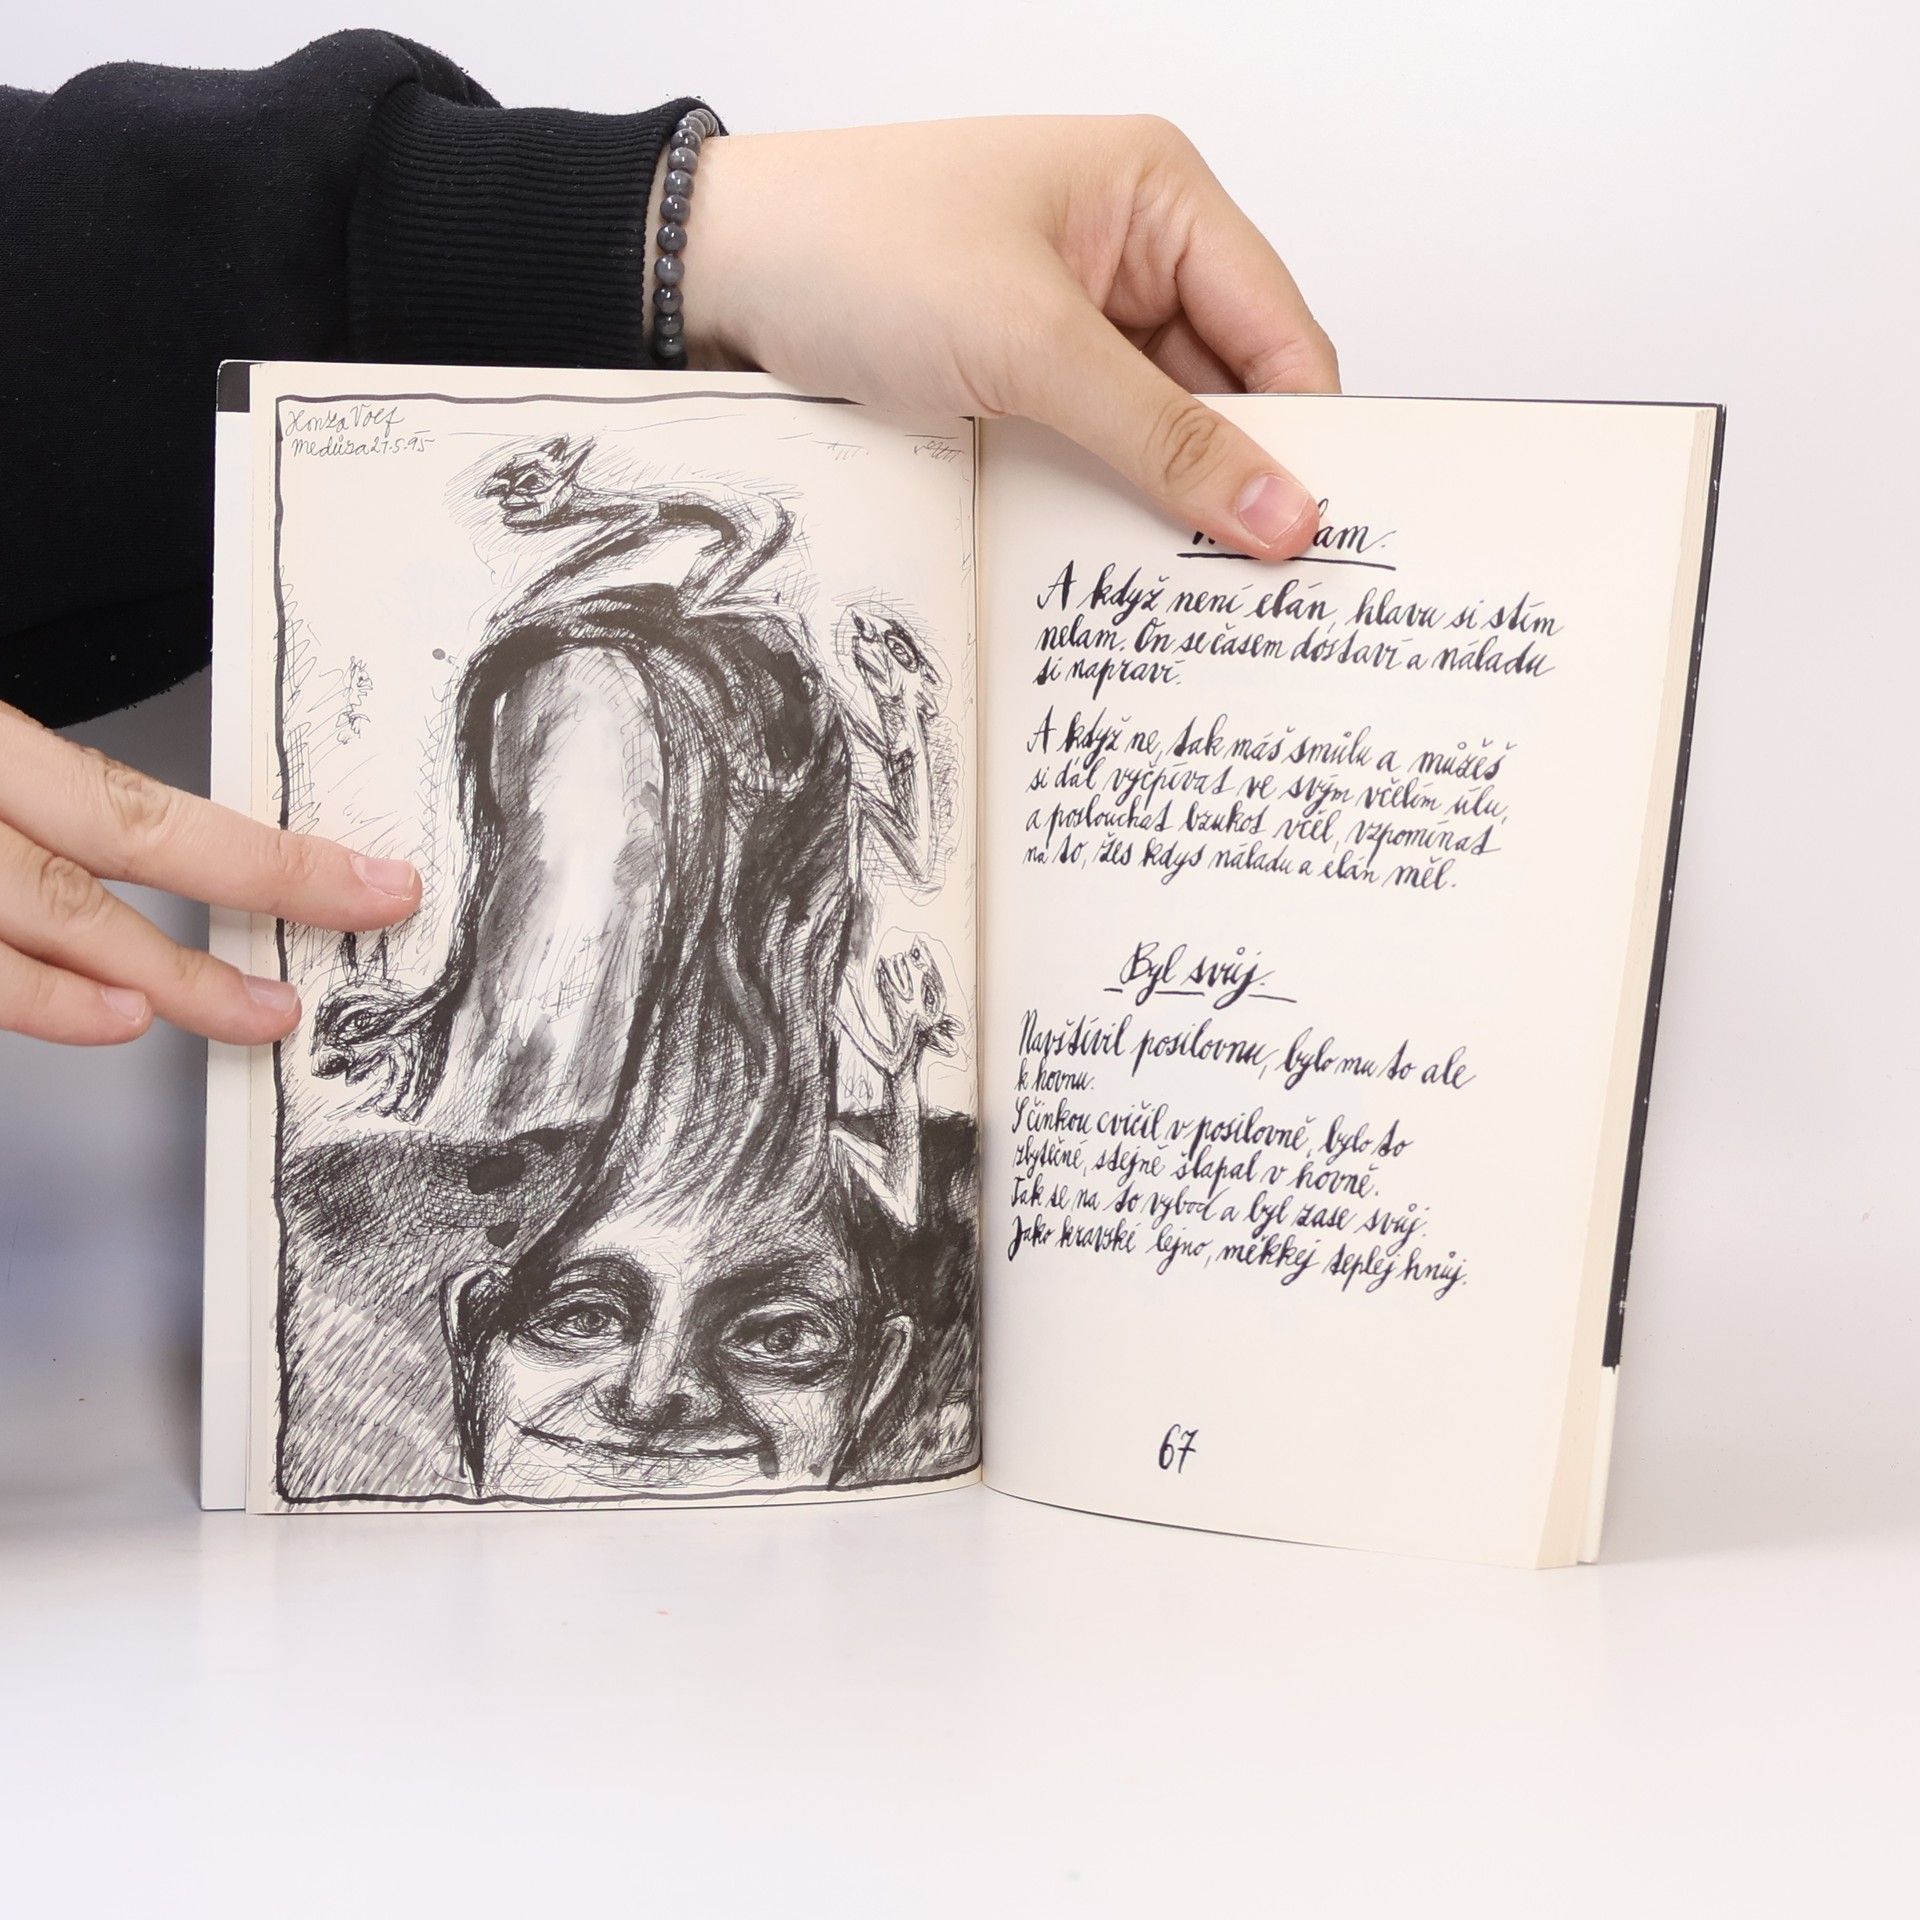 Honza Volf
Medůza 21.5.95
lam.
A když není elán, hlavu si stím
nelam. On se časem dostaví a náladu
si napraví.
A když ne, tak máš smůlu a můžeš
si dál vyčpívat ve svým včelím úlu,
a poslouchat bzukot včel, vzpomínat
na to, žes kdys náladu a elán měl.
Byl svůj.
Navštívil posilovnu, bylo mu to ale
k hovnu.
S činkou cvičil v posilovně, bylo to
zbytečné, stejně šlapal v hovně.
Tak se na to vybod a byl zase svůj.
Jako kravské lejno, měkkej teplej hnůj.
67